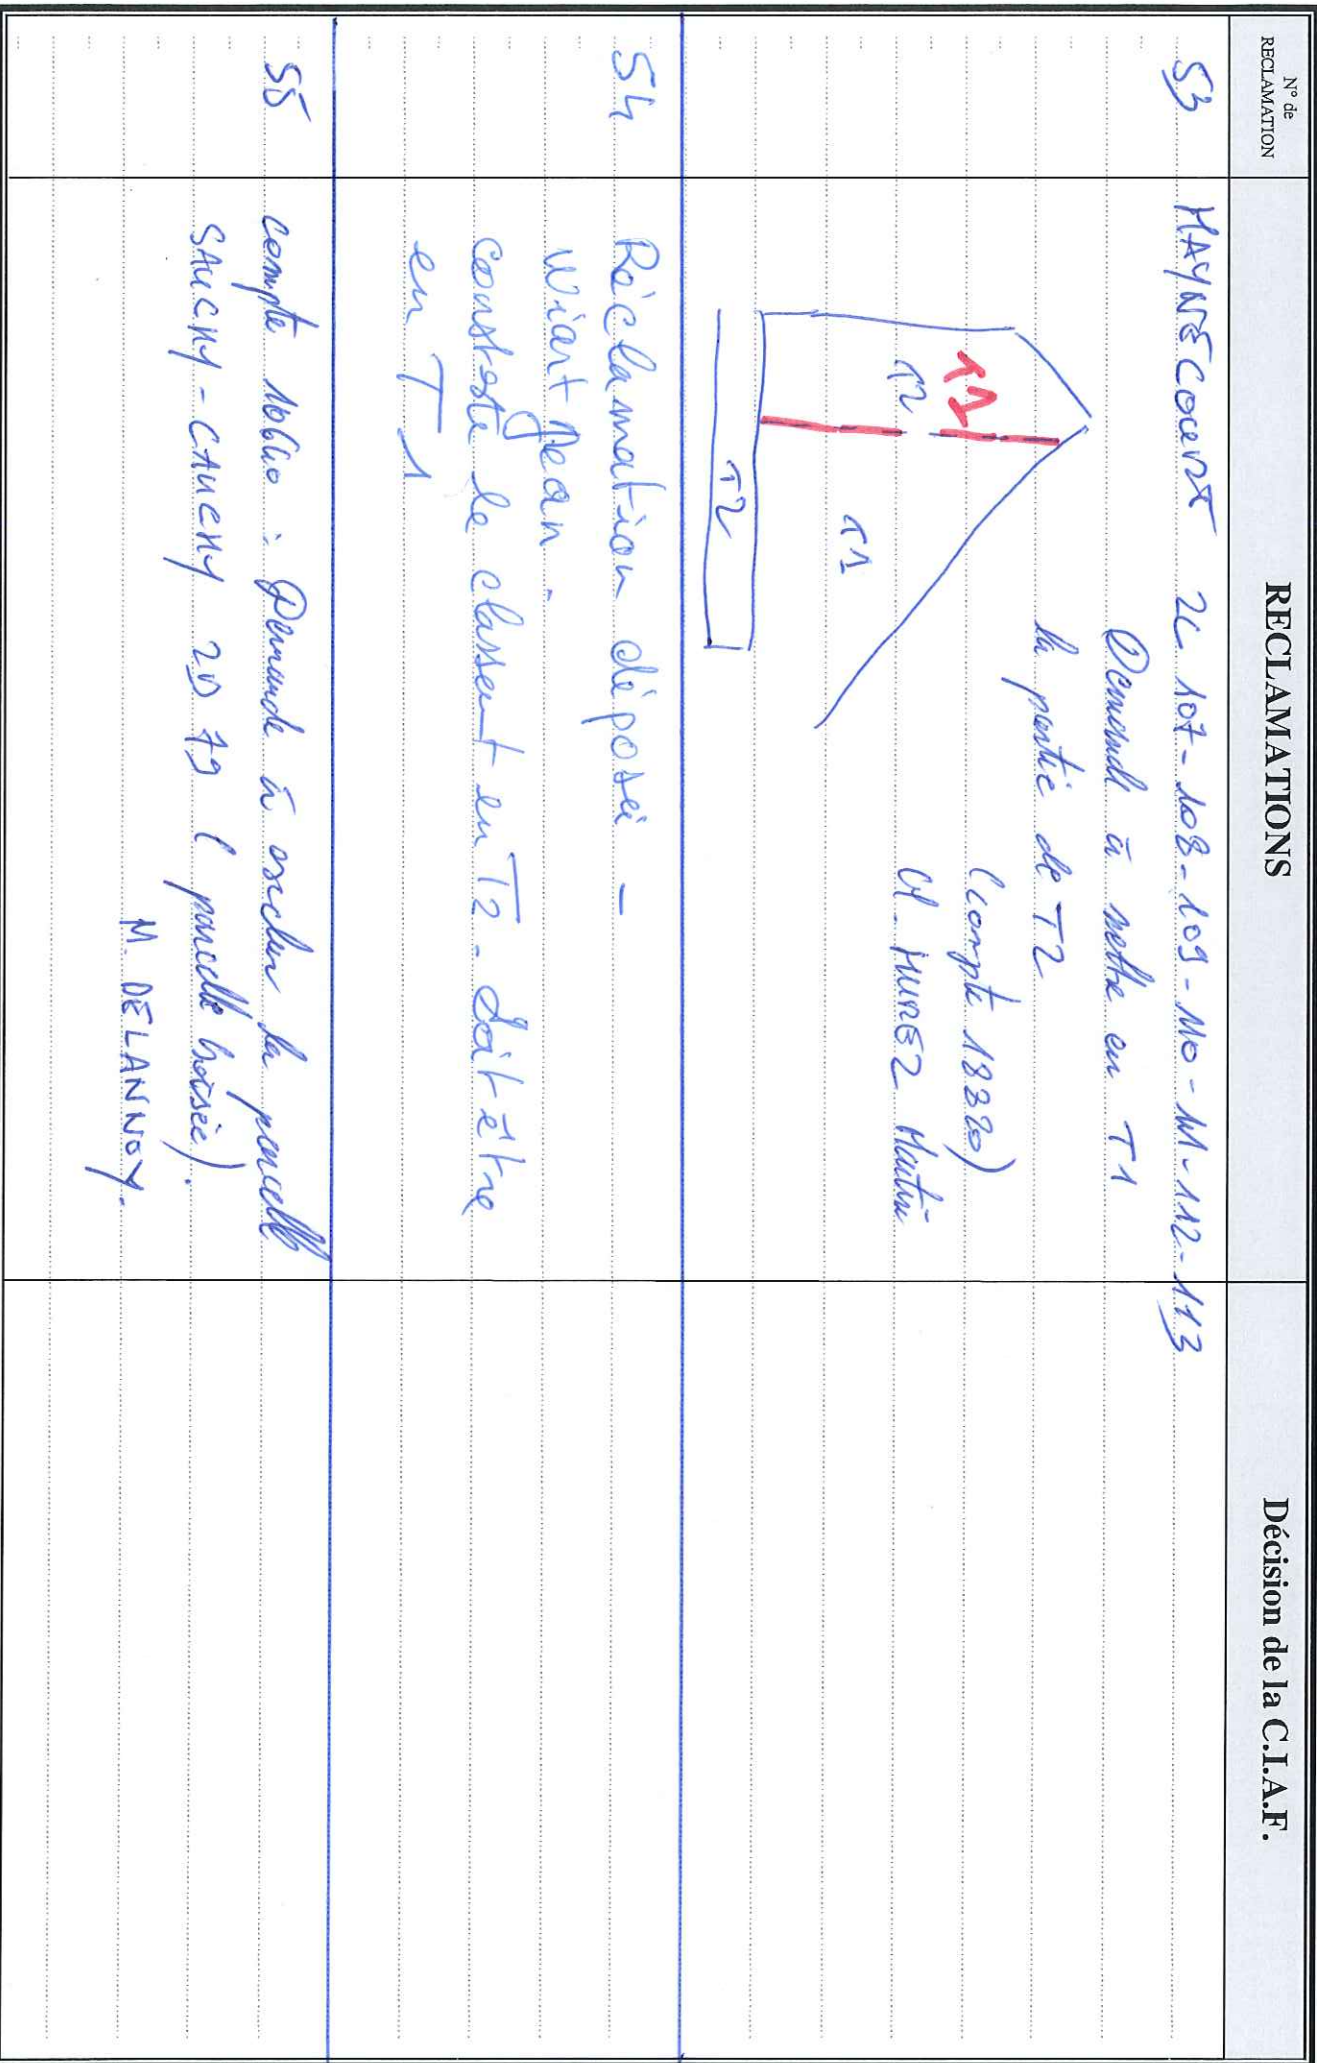 N° de
RECLAMATION
RECLAMATIONS
Décision de la C.I.A.F.
53
HAYNECOURT 2C 107-108-109-110-111-112-113
Demande à mettre en T1
la partie de T2
(compte 18320)
M. HUREZ
T1
T2
T1
T2
54
Réclamation déposée -
Wiart Jean -
conteste le classement en T2. Doit être
en T1
55
compte 10640 : Demande à exclure la parcelle
SAUCHY-CAUCHY ZD 79 (parcelle boisée).
M. DELANNOY.